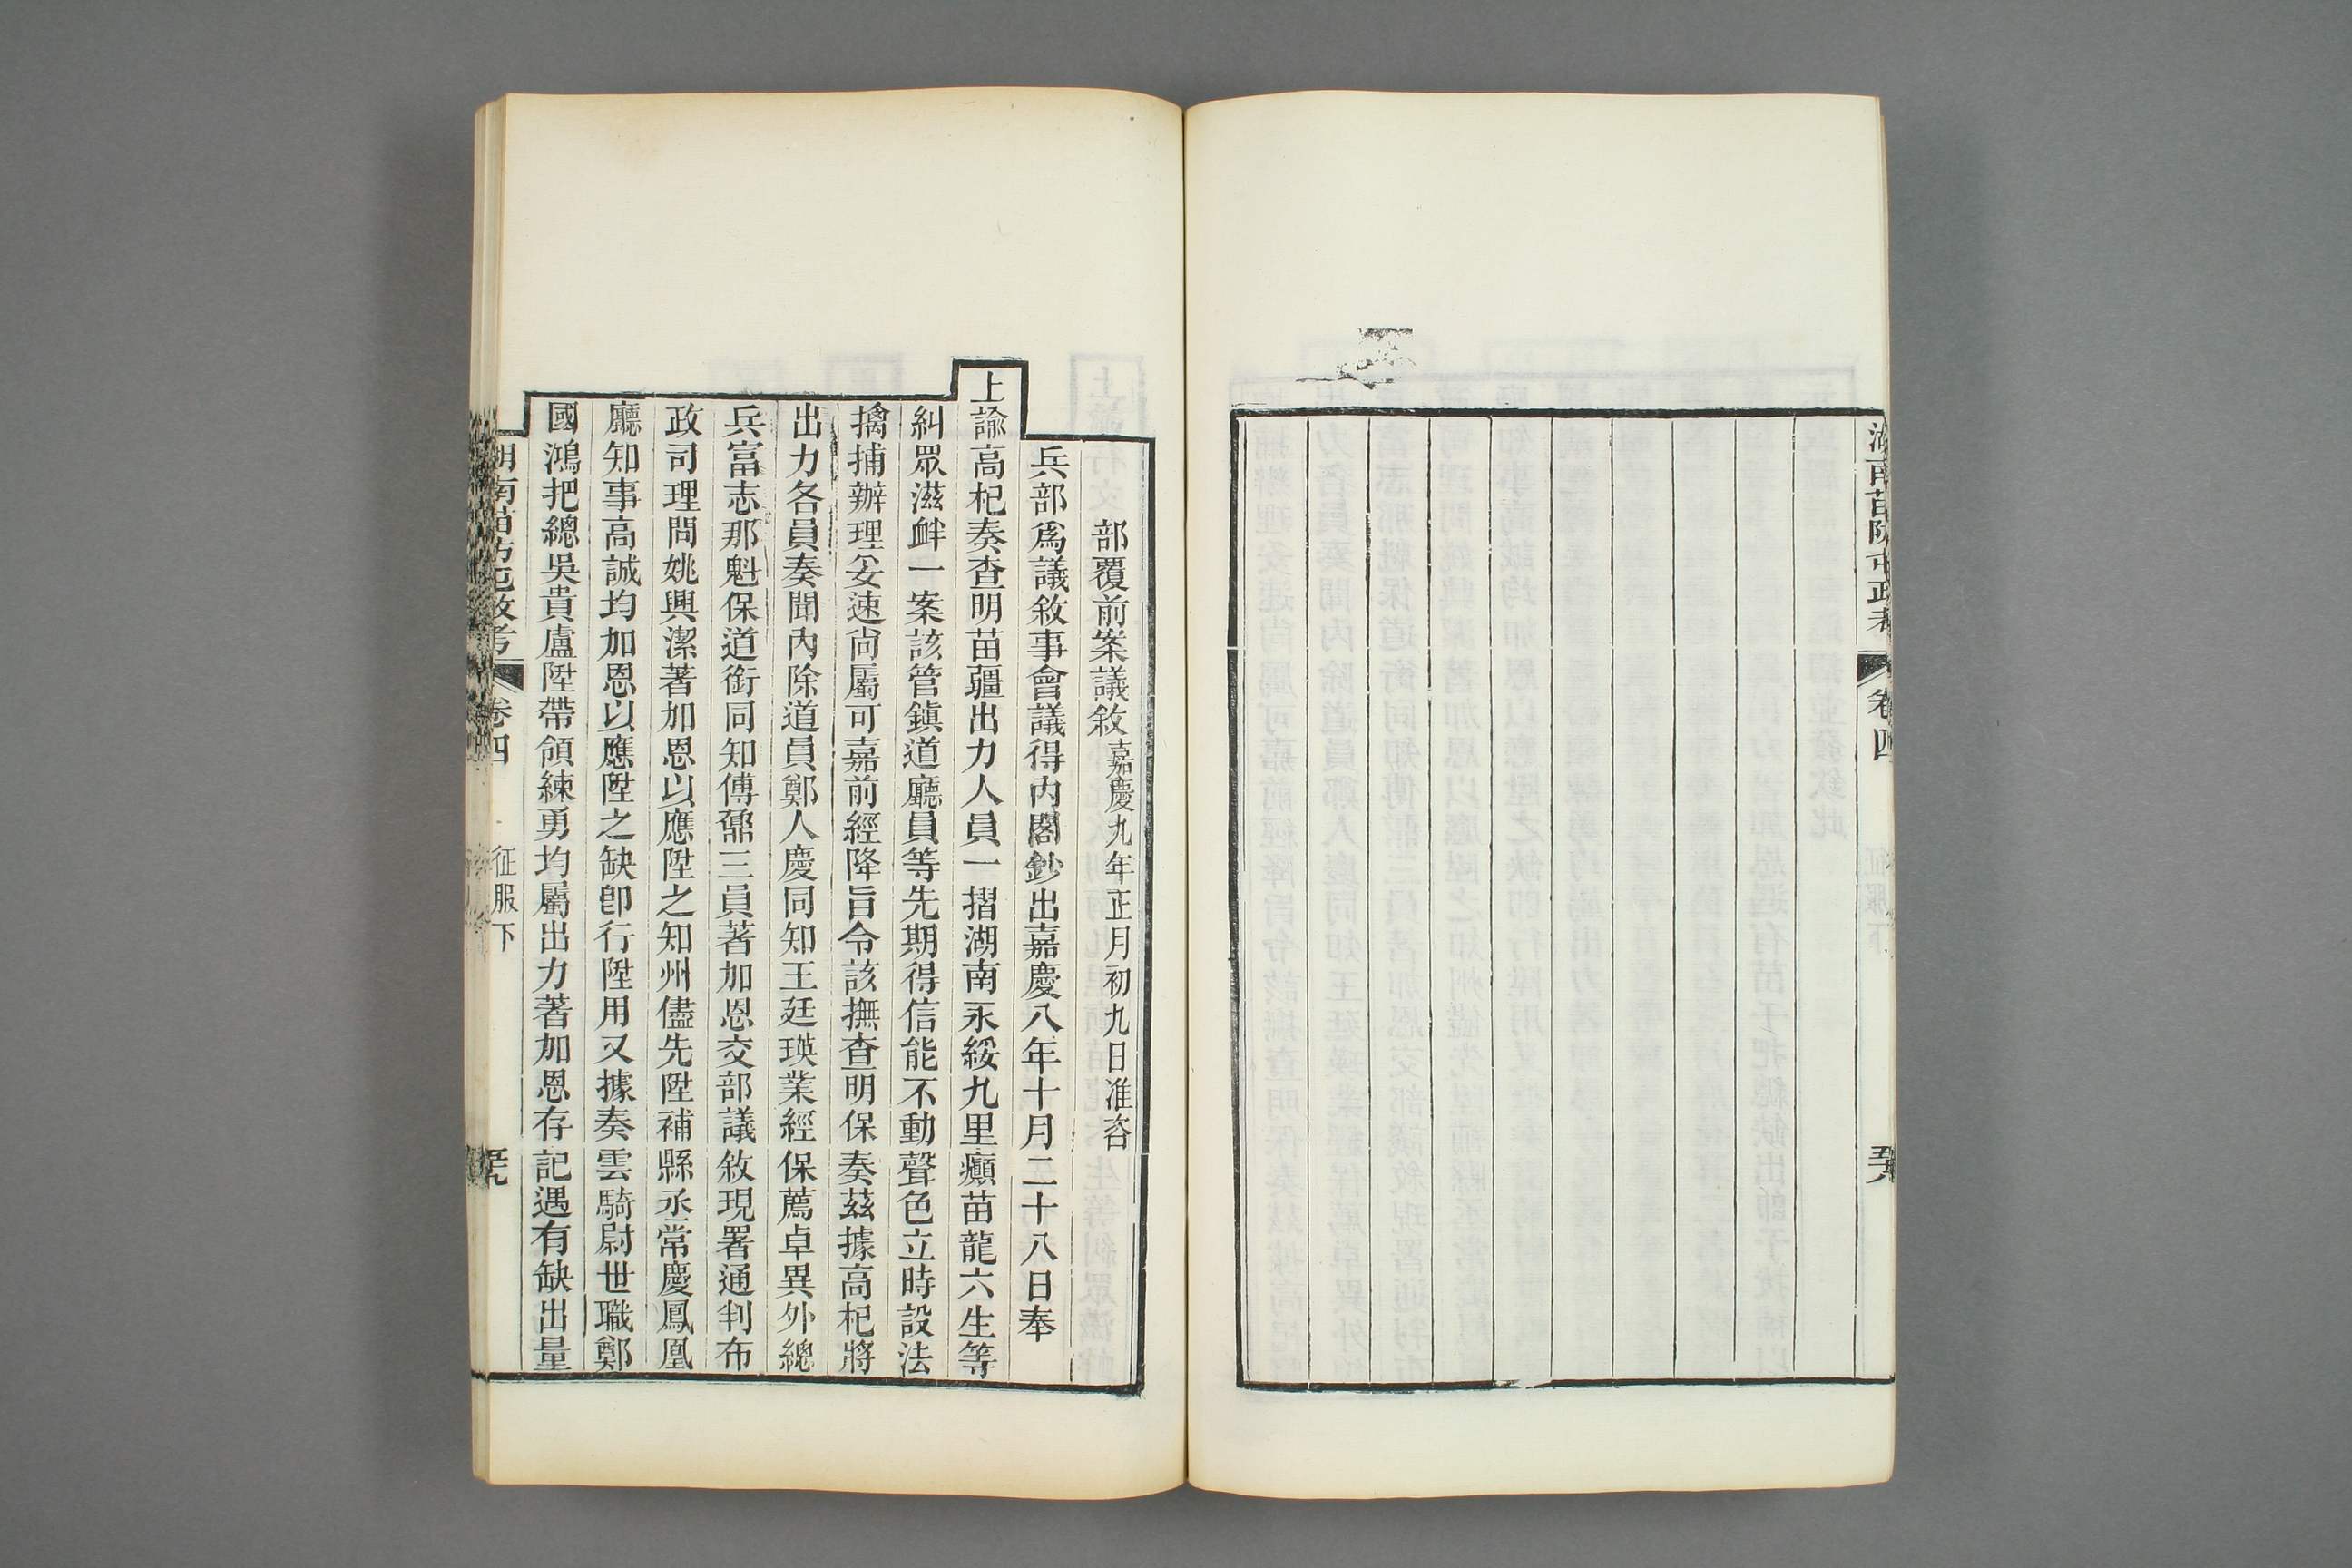 湖南苗防屯政考
卷四
征服下
部覆前案議敘嘉慶九年正月初九日准咨
兵部爲議敘事會議得內閣鈔出嘉慶八年十月二十八日奉
上諭高杞奏查明苗疆出力人員一摺湖南永綏九里癲苗龍六生等
糾眾滋衅一案該管鎮道廳員等先期得信能不動聲色立時設法
擒捕辦理妥速尚屬可嘉前經降旨令該撫查明保奏茲據高杞將
出力各員奏聞內除道員鄭人慶同知王廷瑛業經保薦卓異外總
兵富志那魁保道銜同知傅鼐三員著加恩交部議敘現署通判布
政司理問姚興潔著加恩以應陞之知州儘先陞補縣丞常慶鳳凰
廳知事高誠均加恩以應陞之缺卽行陞用又據奏雲騎尉世職鄭
國鴻把總吳貴盧陞帶領練勇均屬出力著加恩存記遇有缺出量
湖南苗防屯政考
卷四
征服下